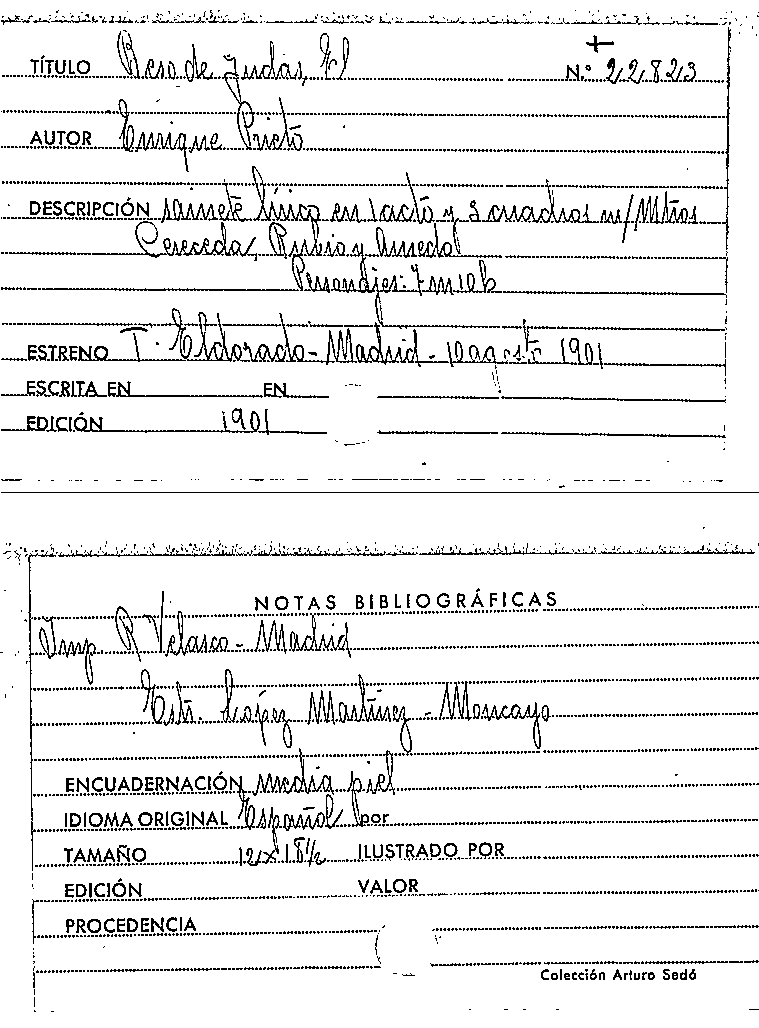 TÍTULO Beso de Judas, El N.º 22823
AUTOR Enrique Prieto
DESCRIPCIÓN sainete lírico en 1 acto y 3 cuadros m/ Mtros
Cereceda, Rubio y Amedo
Personajes: 7 m 10 h
ESTRENO T. Eldorado - Madrid - 10 agosto 1901
ESCRITA EN EN
EDICIÓN 1901
NOTAS BIBLIOGRÁFICAS
Imp. R Velasco - Madrid
Estr. López Martínez - Moncayo
ENCUADERNACIÓN media piel
IDIOMA ORIGINAL Español por
TAMAÑO 12 x 18 ½ ILUSTRADO POR
EDICIÓN VALOR
PROCEDENCIA
Colección Arturo Sedó